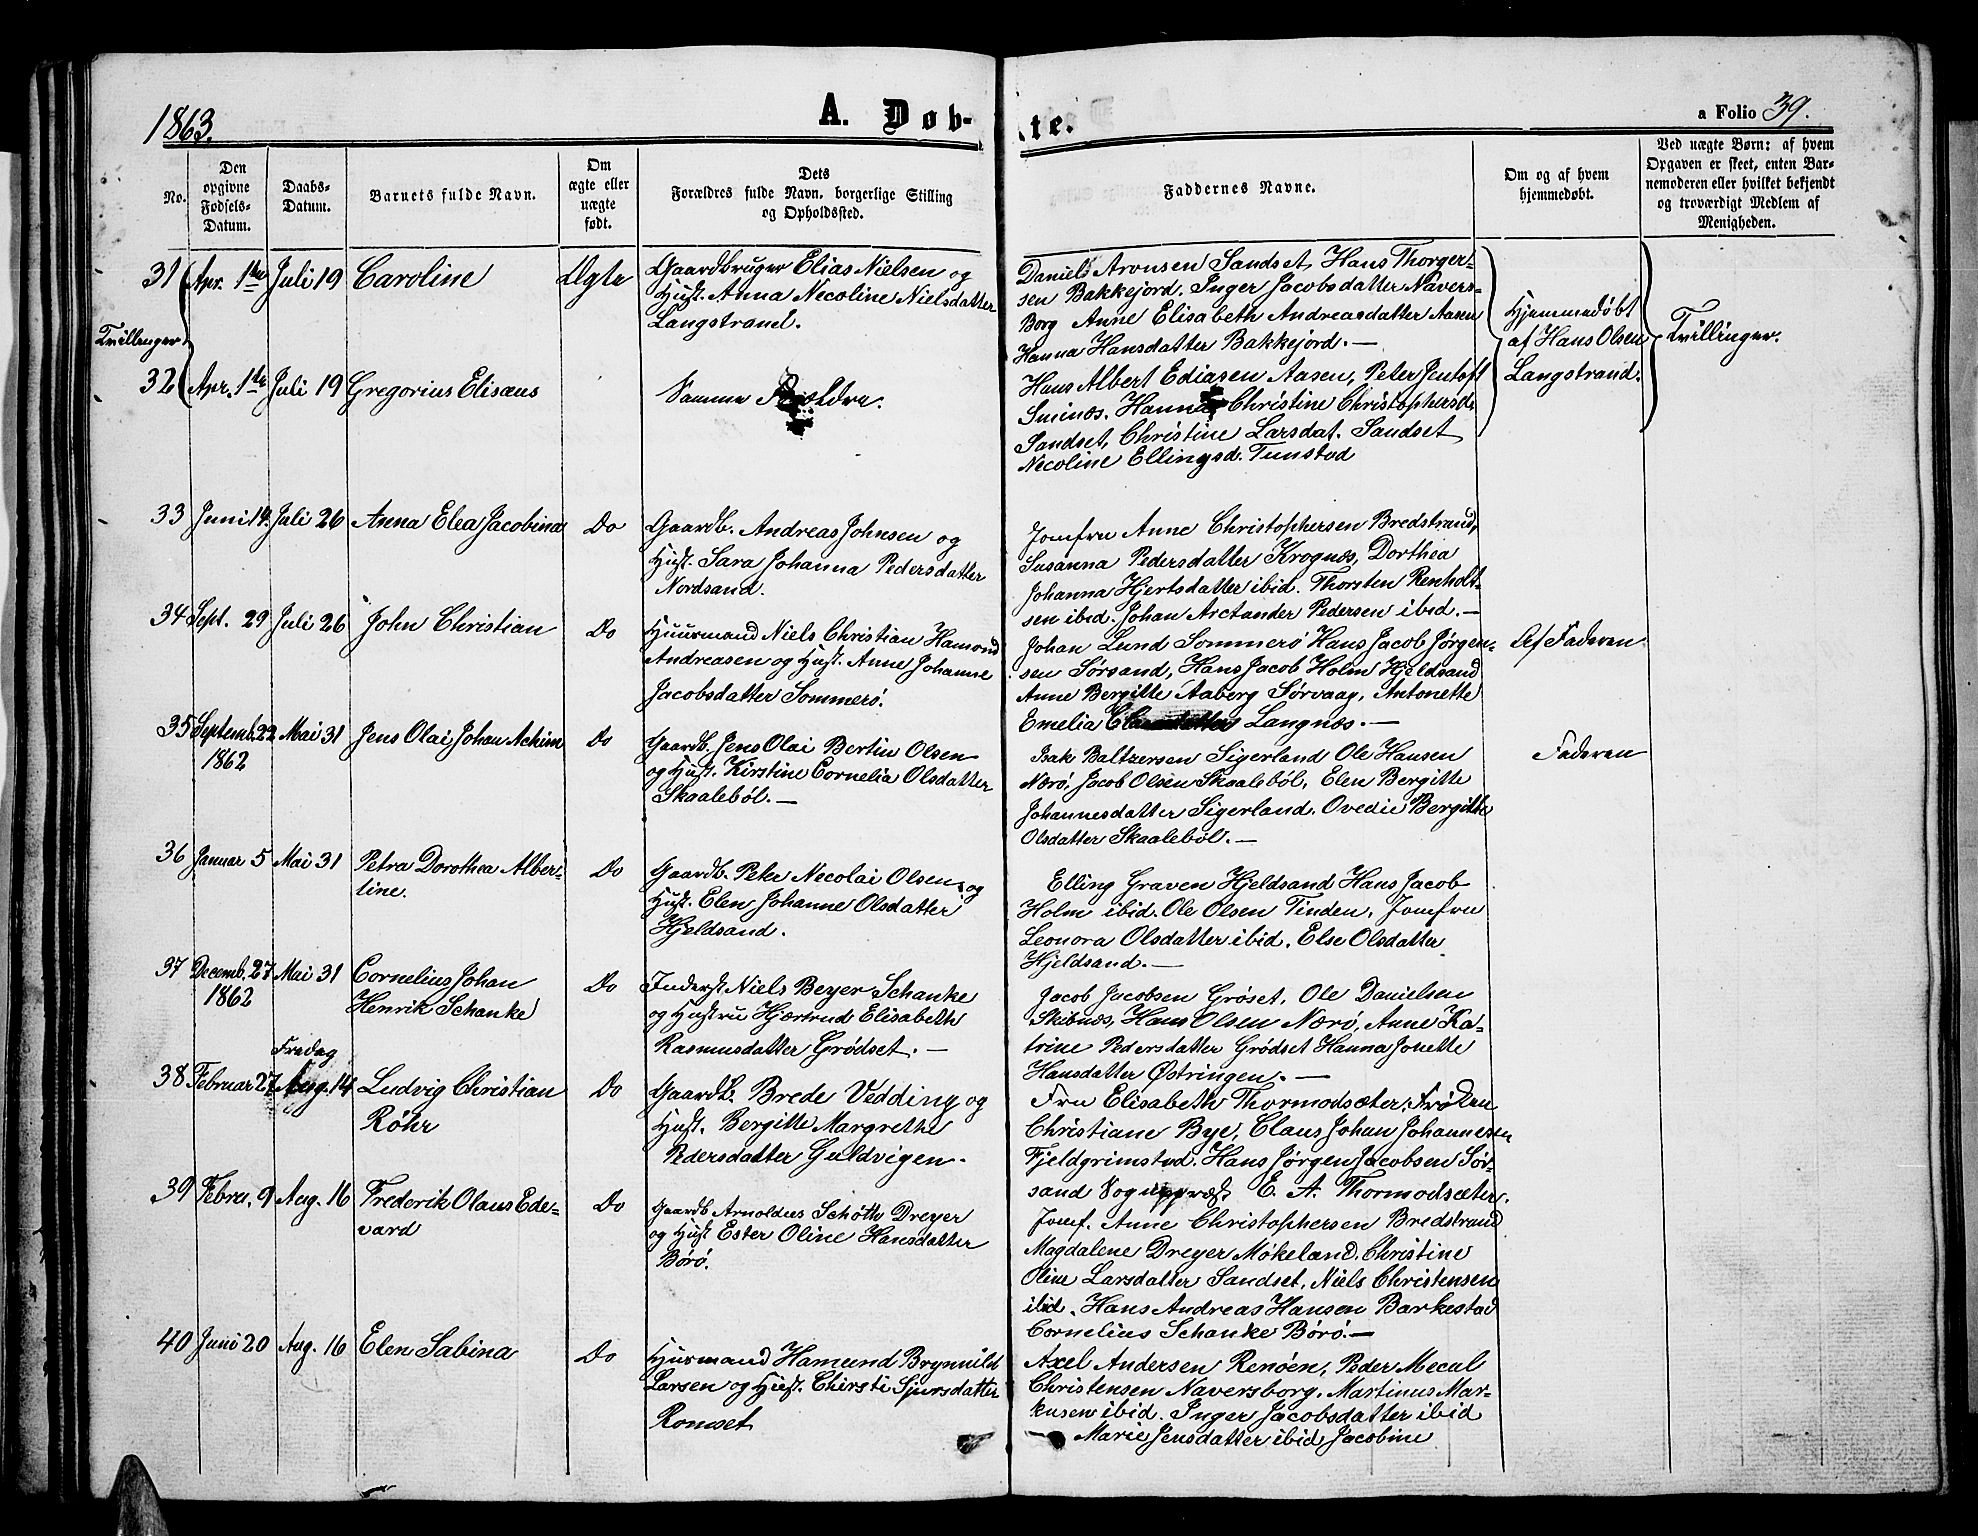 1863.
A. Døb-
te.
a Folio 39.
No.
Den
opgivne
Fødsels-
Datum.
Daabs-
Datum.
Barnets fulde Navn.
Om
ægte eller
uægte
født.
Dets
Forældres fulde Navn, borgerlige Stilling
og Opholdssted.
Faddernes Navne.
Om og af hvem
hjemmedøbt.
Ved uægte Børn: af hvem
Opgaven er skeet, enten Bar-
nemoderen eller hvilket bekjendt
og troværdigt Medlem af
Menigheden.
31 Apr. 1ste Juli 19 Caroline Ægte
Gaardbruger Elias Nielsen og
Hust. Anna Necoline Nielsdatter
Langstrand.
Daniel Aronsen Sandset, Hans Thorger-
sen Bakkejord. Inger Jacobsdatter Navers-
Borg Anne Elisabeth Andreasdatter Aasen
Hanna Hansdatter Bakkejord. —
Hjemmedøbt
af Hans Olsen
Langstrand.
Tvillinger
Tvillinger.
32 Apr. 1ste Juli 19 Gregorius Elisæus
Samme Forældre.
Hans Albert Ediasen Aasen, Peter Jentoft
Smines. Hanna Christine Christophersd.
Sandset, Christine Larsdat. Sandset
Necoline Ellingsd. Tunstad
33 Juni 14. Juli 26 Anna Elea Jacobina Do
Gaardb. Andreas Johnsen og
Hust. Sara Johanna Pedersdatter
Nordsand.
Jomfru Anne Christophersen Bredstrand,
Susanna Pedersdatter Krognæs, Dorthea
Johanna Hjertsdatter ibid. Thorsten Renholt-
sen ibid. Johan Arctander Pedersen ibid. —
34 Sept. 29 Juli 26 John Christian Do
Huurmand Niels Christian Hamond
Andreasen og Hust. Anne Johanne
Jacobsdatter Sommerø.
Johan Lund Sommerø Hans Jacob Jørgen-
sen Sørsand, Hans Jacob Holm Hjeldsand
Anne Bergitte Aaberg Sørvaag, Antonette
Emelia Langnæs. —
Af Faderen
35 Septemb. 22 Mai 31 Jens Olai Johan Achim Do
1862
Gaardb. Jens Olai Bertin Olsen
og Hust. Kirstine Cornelia Olsdatter
Skaalebøl. —
Isak Baltzersen Sigerland Ole Hansen
Nærø, Jacob Olsen Skaalebøl, Elen Bergitte
Johannesdatter Sigerland. Ovedie Bergitte
Olsdatter Skaalebøl. —
Faderen
36 Januar 5 Mai 31 Petra Dorothea Alber-
tine. Do
Gaardb. Peter Necolai Olsen og
Hust. Elen Johanne Olsdatter
Hjeldsand.
Elling Graven Hjeldsand Hans Jacob
Holm ibid. Ole Olsen Tinden, Jomfru
Leonora Olsdatter ibid. Else Olsdatter
Hjeldsand. —
37 Decemb. 27 Mai 31 Cornelius Johan
1862 Henrik Schanke Do
Inderst Niels Beyer Schanke
og Hustru Hjærtrud Elisabeth
Rasmusdatter Grødset. —
Jacob Jacobsen Grøset, Ole Danielsen
Skibnæs, Hans Olsen Nærø, Anne Ka-
trine Pedersdatter Grødset Hanna Jonette
Hansdatter Østringen. —
Fredag
38 Februar 27 Aug. 14 Ludvig Christian
Røhr Do
Gaardb. Brede Vedding og
Hust. Bergitte Margrethe
Pedersdatter Guldvigen.
Fru Elisabeth Thormodsæter, Frøken
Christiane Bye, Claus Johan Johannessen
Fjeldgrimstad. Hans Jørgen Jacobsen Sør-
sand Sogneprest E. A. Thormodsæter.
39 Febru. 9 Aug. 16 Frederik Olaus Ede-
vard Do
Gaardb. Arnoldus Schøtth Dreyer
og Hust Ester Oline Hansdatter
Børø.
Jomf. Anne Christophersen Bredstrand
Magdalene Dreyer Møkeland. Christine
Oline Larsdatter Sandset, Niels Christensen
ibid. Hans Andreas Hansen Barkestad
Cornelius Schanke Børø. —
40 Juni 20 Aug. 16 Elen Sabina Do
Huurmand Hamund Brynnild
Larsen og Hust. Chirsti Sjursdatter
Romset
Axel Andersen Renøen, Peder Mecal
Christensen Naversborg. Martinus Mar-
kusen ibid. Inger Jacobsdatter ibid
Marie Jensdatter ibid Jacobine